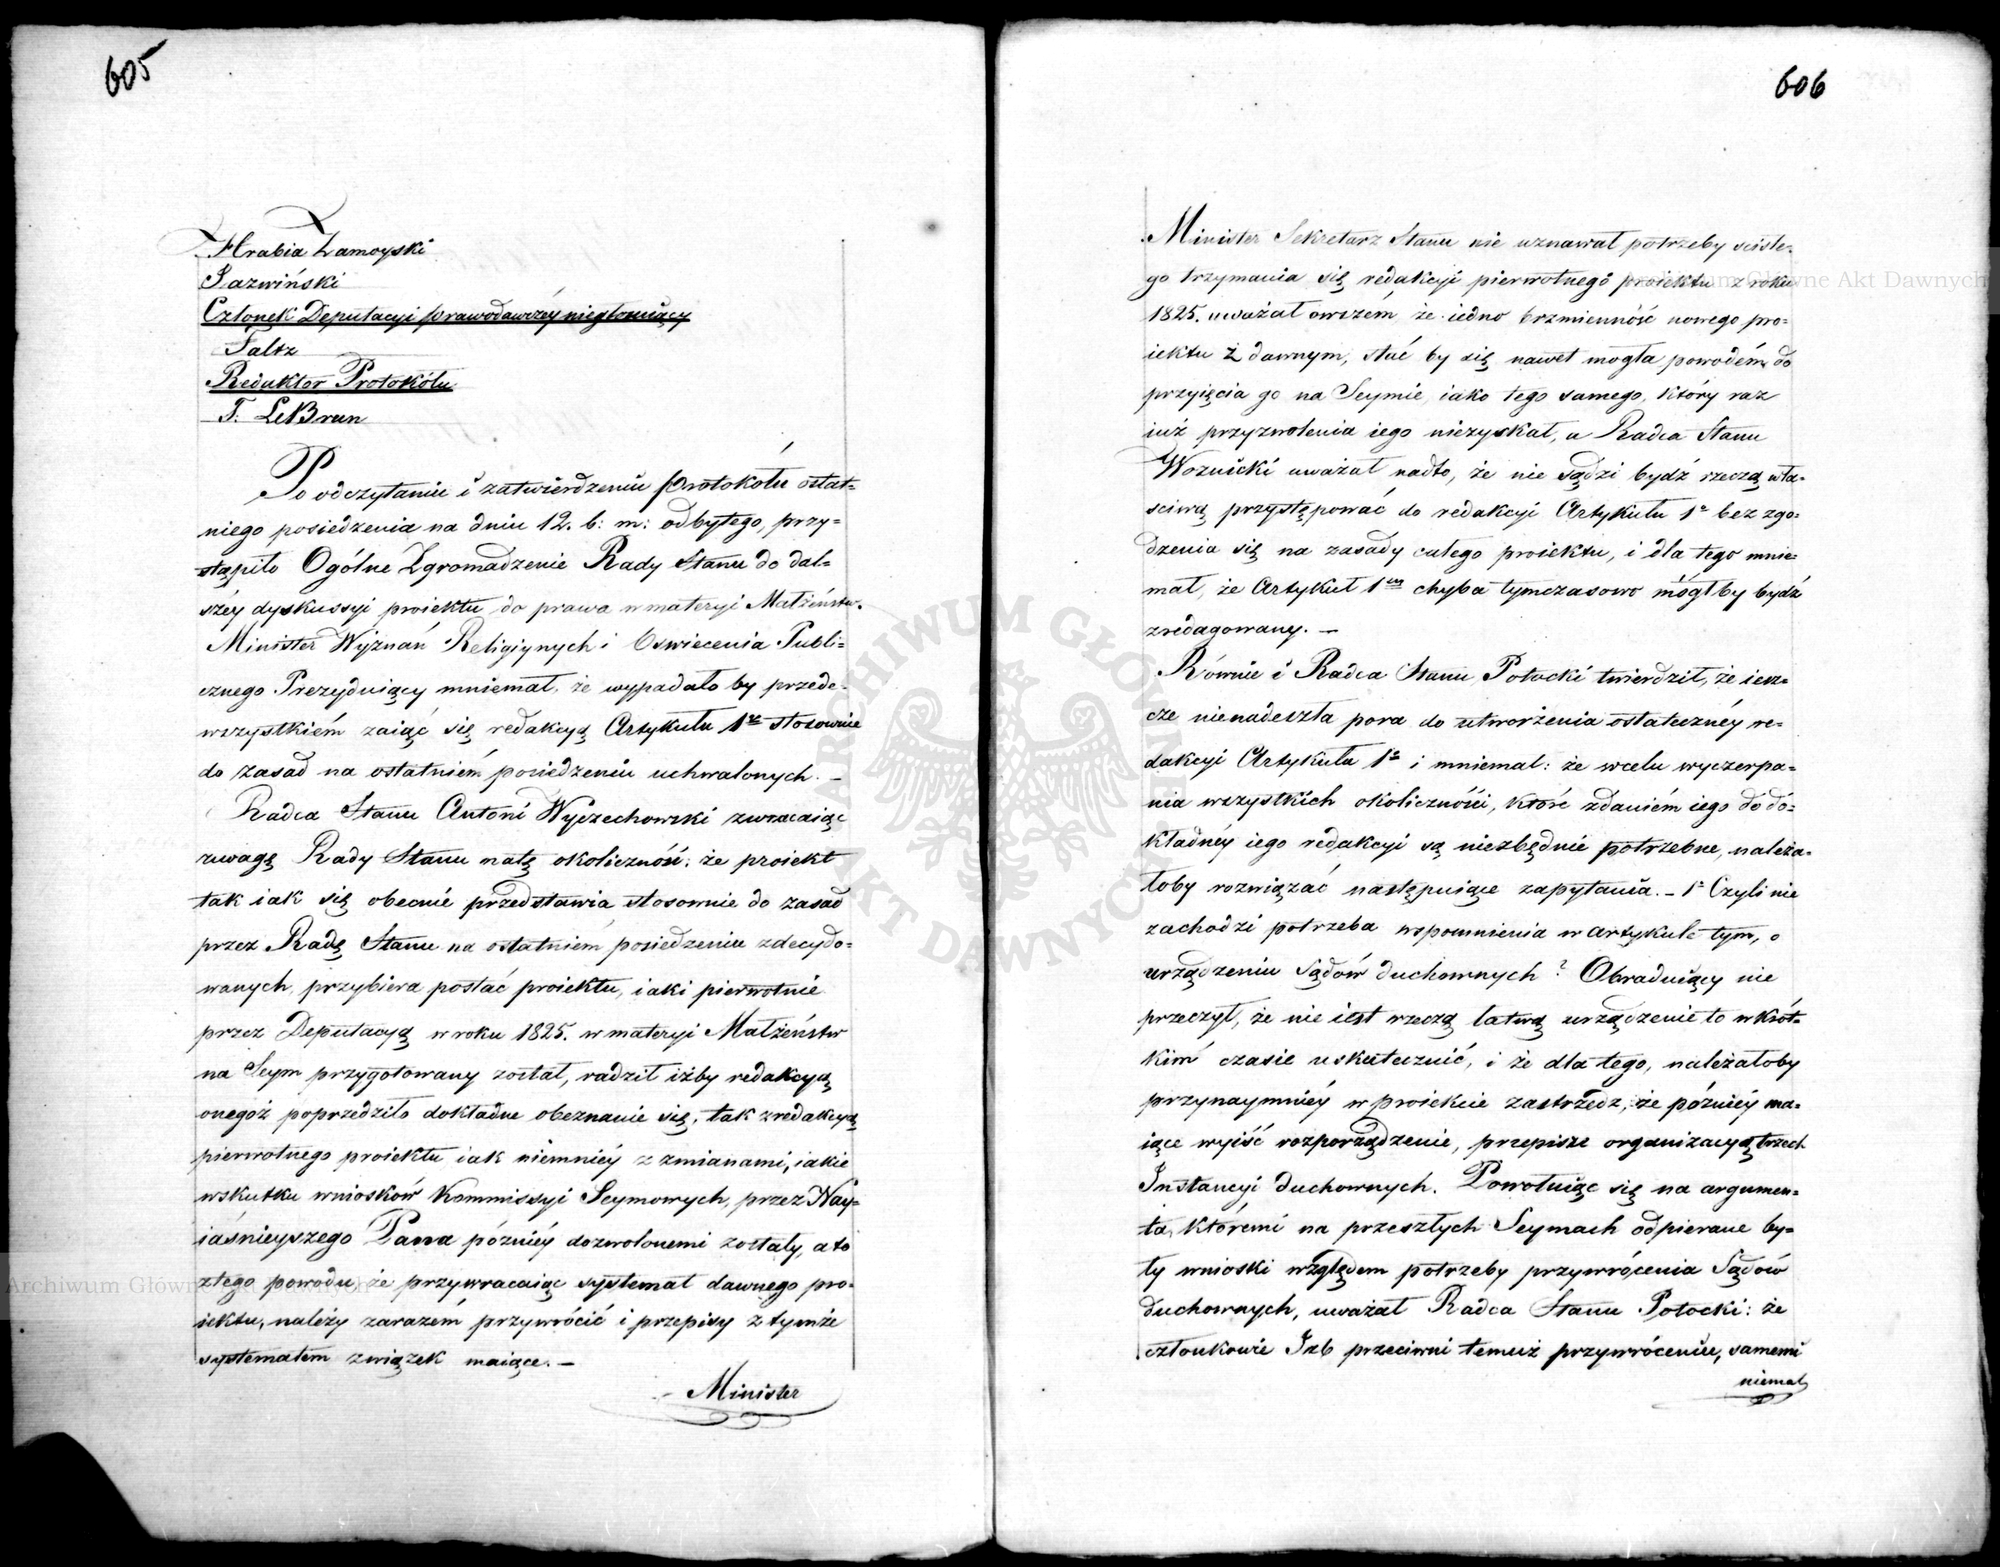 605
Hrabia Zamoyski
Jazwiński
Członek Deputacyi prawodawczéy niegłosuiący
Faltz
Redaktor Protokółu
F. LeBrun
Po odczytaniu i zatwierdzeniu protokółu ostat-
niego posiedzenia na dniu 12. b: m: odbytego, przy-
stąpiło Ogólne Zgromadzenie Rady Stanu do dal-
széy dyskussyi proiektu do prawa w materyi Małżeństw.
Minister Wyznań Religiynych i Oswiecenia Publi-
cznego Prezyduiący mniemał, że wypadało by przede-
wszystkiém zaiąć się redakcyą Artykułu 1º stosownie
do zasad na ostatniém posiedzeniu uchwalonych. –
Radca Stanu Antoni Wyczechowski zwracaiąc
uwagę Rady Stanu na tę okoliczność: że proiekt
tak iak się obecnie przedstawia stosownie do zasad
przez Radę Stanu na ostatniém posiedzeniu zdecydo-
wanych, przybiera postać proiektu, iaki pierwotnie
przez Deputacyą w roku 1825. w materyi Małżeństw
na Seym przygotowany został, radził iżby redakcyą
onegoż poprzedziło dokładne obeznanie się, tak z redakcyą
pierwotnego proiektu iak niemniéy z zmianami, iakie
wskutku wniosków Kommissyi Seymowych, przez Nay-
iaśnieyszego Pana późniéy dozwolonemi zostały, a to
z tego powodu, że przywracaiąc systemat dawnego pro-
iektu, należy zarazém przywrócić i przepisy z tymże
systematem związek maiące. –
Minister
606
Minister Sekretarz Stanu nie uznawał potrzeby sciśle-
go trzymania się redakcyi pierwotnego proiektu z roku
1825. uważał owszém że iedno brzmienność nowego pro-
iektu z dawnym, stać by się nawet mogła powodém do
przyięcia go na Seymie, iako tego samego, który raz
iuż przyzwolenia iego niezyskał, a Radca Stanu
Woznicki uważał nadto, że nie sądzi bydź rzeczą wła-
sciwą przystępować do redakcyi Artykułu 1º bez zgo-
dzenia się na zasady całego proiektu, i dla tego mnie-
mał, że Artykuł 1wy chyba tymczasowo mógłby bydź
zredagowany. –
Równie i Radca Stanu Potocki twierdził, że iesz-
cze nienadeszła pora do utworzenia ostatecznéy re-
dakcyi Artykułu 1º i mniemał: że w celu wyczerpa-
nia wszystkich okoliczności, które zdaniém iego do do-
kładnéy iego redakcyi są niezbędnie potrzebne, należa-
łoby rozwiązać następuiące zapytania. – 1º Czyli nie
zachodzi potrzeba wspomnienia w artykule tym, o
urządzeniu Sądów duchownych? Obraduiący nie
przeczył, że nie iest rzeczą łatwą urządzenie to w krót-
kim czasie uskutecznić, i że dla tego, należałoby
przynaymniéy w proiekcie zastrzedz, że późniéy ma-
iące wyiść rozporządzenie, przepisze organizacyą trzech
Instancyi duchownych. Powołuiąc się na argumen-
ta, któremi na przeszłych Seymach odpierane by-
ły wnioski względem potrzeby przywrócenia Sądów
duchownych, uważał Radca Stanu Potocki: że
członkowie Izb przeciwni temuż przywróceniu, samemi
niemal
ARCHIWUM GŁÓWNE AKT DAWNYCH
Archiwum Główne Akt Dawnych
Archiwum Główne Akt Dawnych